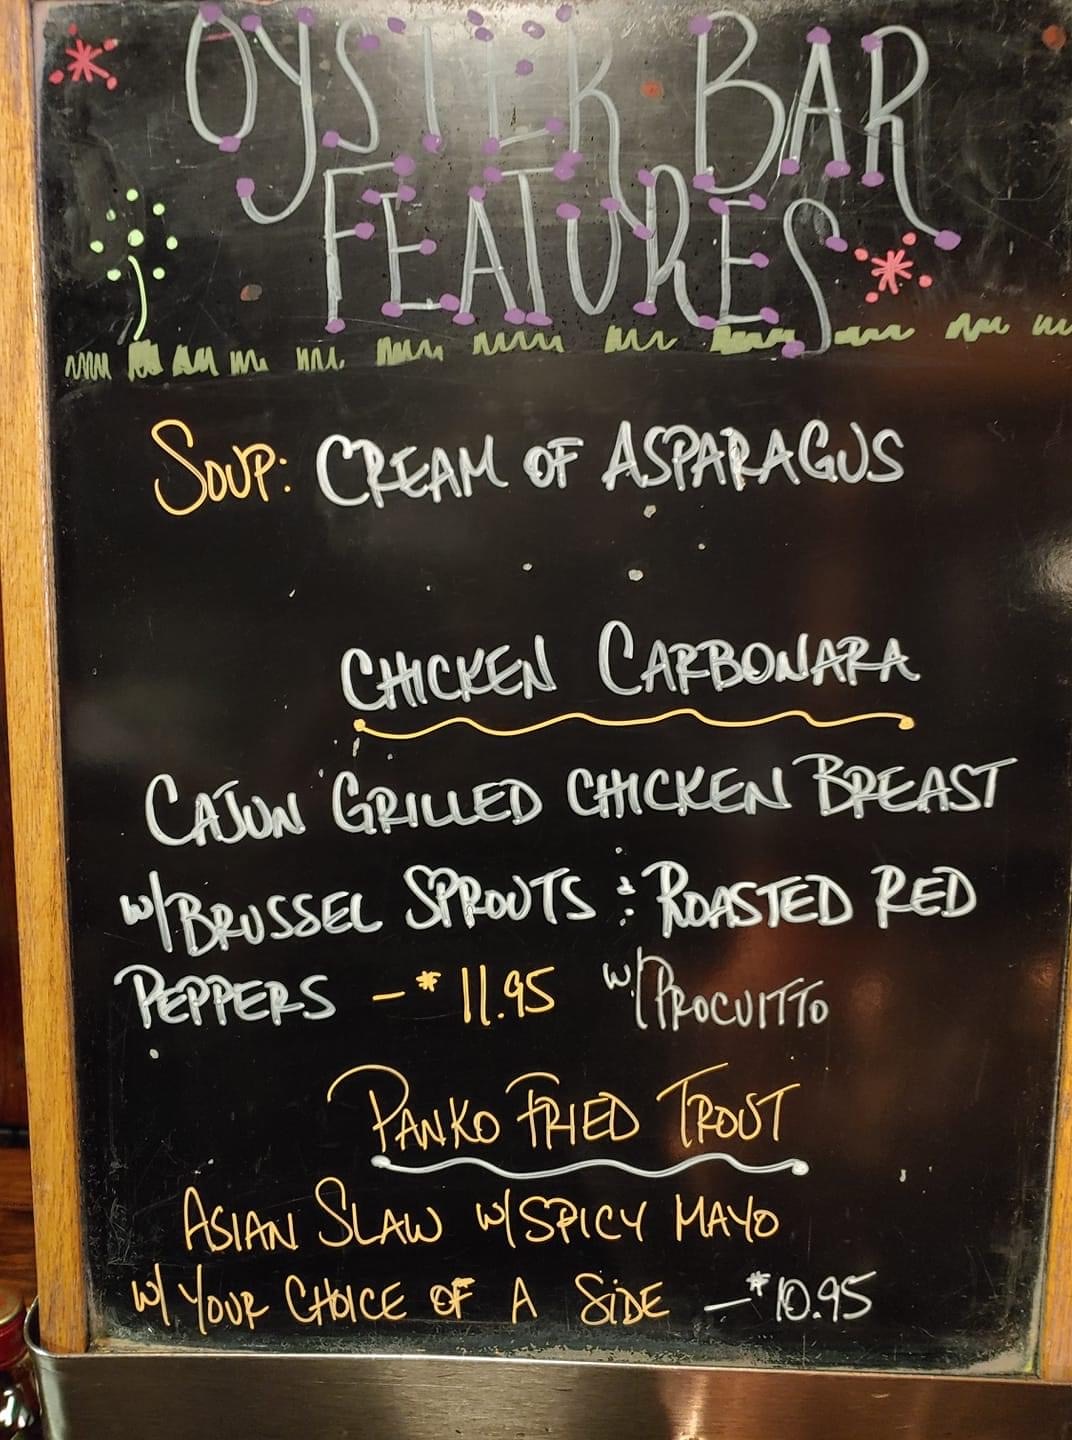 OYSTER BAR
FEATURES
SOUP: CREAM OF ASPARAGUS
CHICKEN CARBONARA
CAJUN GRILLED CHICKEN BREAST
W/BRUSSEL SPROUTS & ROASTED RED
PEPPERS - $11.95 W/PROCUITTO
PANKO FRIED TROUT
ASIAN SLAW W/SPICY MAYO
W/ YOUR CHOICE OF A SIDE - $10.95